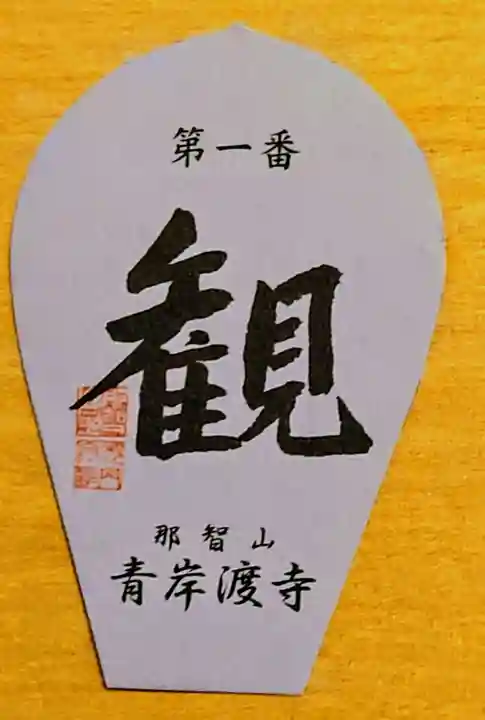 第一番
観
那智山
青岸渡寺